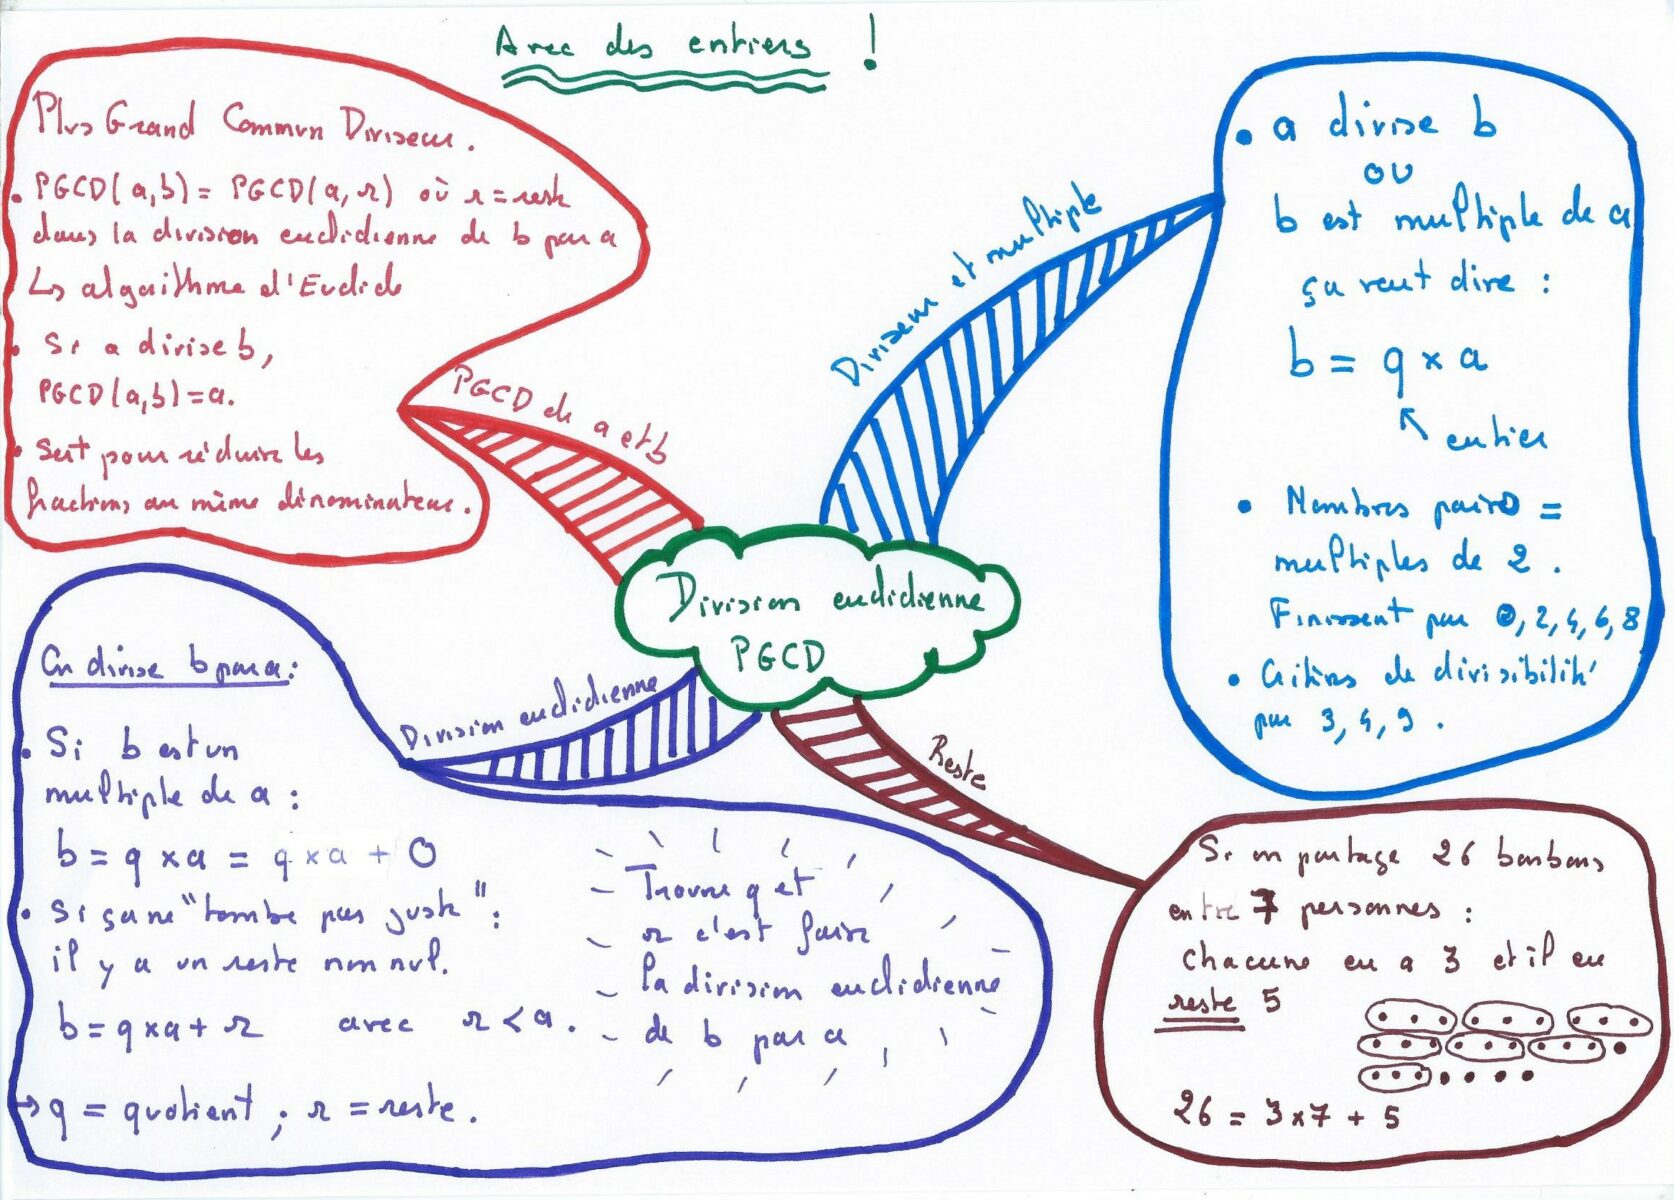 Avec des entiers !
Plus Grand Commun Diviseur.
• PGCD(a,b) = PGCD(a,r) où r = reste
dans la division euclidienne de b par a
↳ algorithme d'Euclide
• Si a divise b,
PGCD(a,b) = a.
• sert pour réduire les
fractions au même dénominateur.
PGCD de a et b
Diviseur et multiple
• a divise b
ou
b est multiple de a
ça veut dire :
b = q × a
entier
• Nombres pairs =
multiples de 2.
Finissent par 0, 2, 4, 6, 8
• Critères de divisibilité
par 3, 4, 9.
Division euclidienne
PGCD
Division euclidienne
On divise b par a :
• Si b est un
multiple de a :
b = q × a = q × a + 0
• Si ça ne "tombe pas juste" :
il y a un reste non nul.
b = q × a + r avec r < a.
→ q = quotient ; r = reste.
Trouver q et
r c'est faire
la division euclidienne
de b par a
Reste
Si on partage 26 bonbons
entre 7 personnes :
chacune en a 3 et il en
reste 5
26 = 3 × 7 + 5